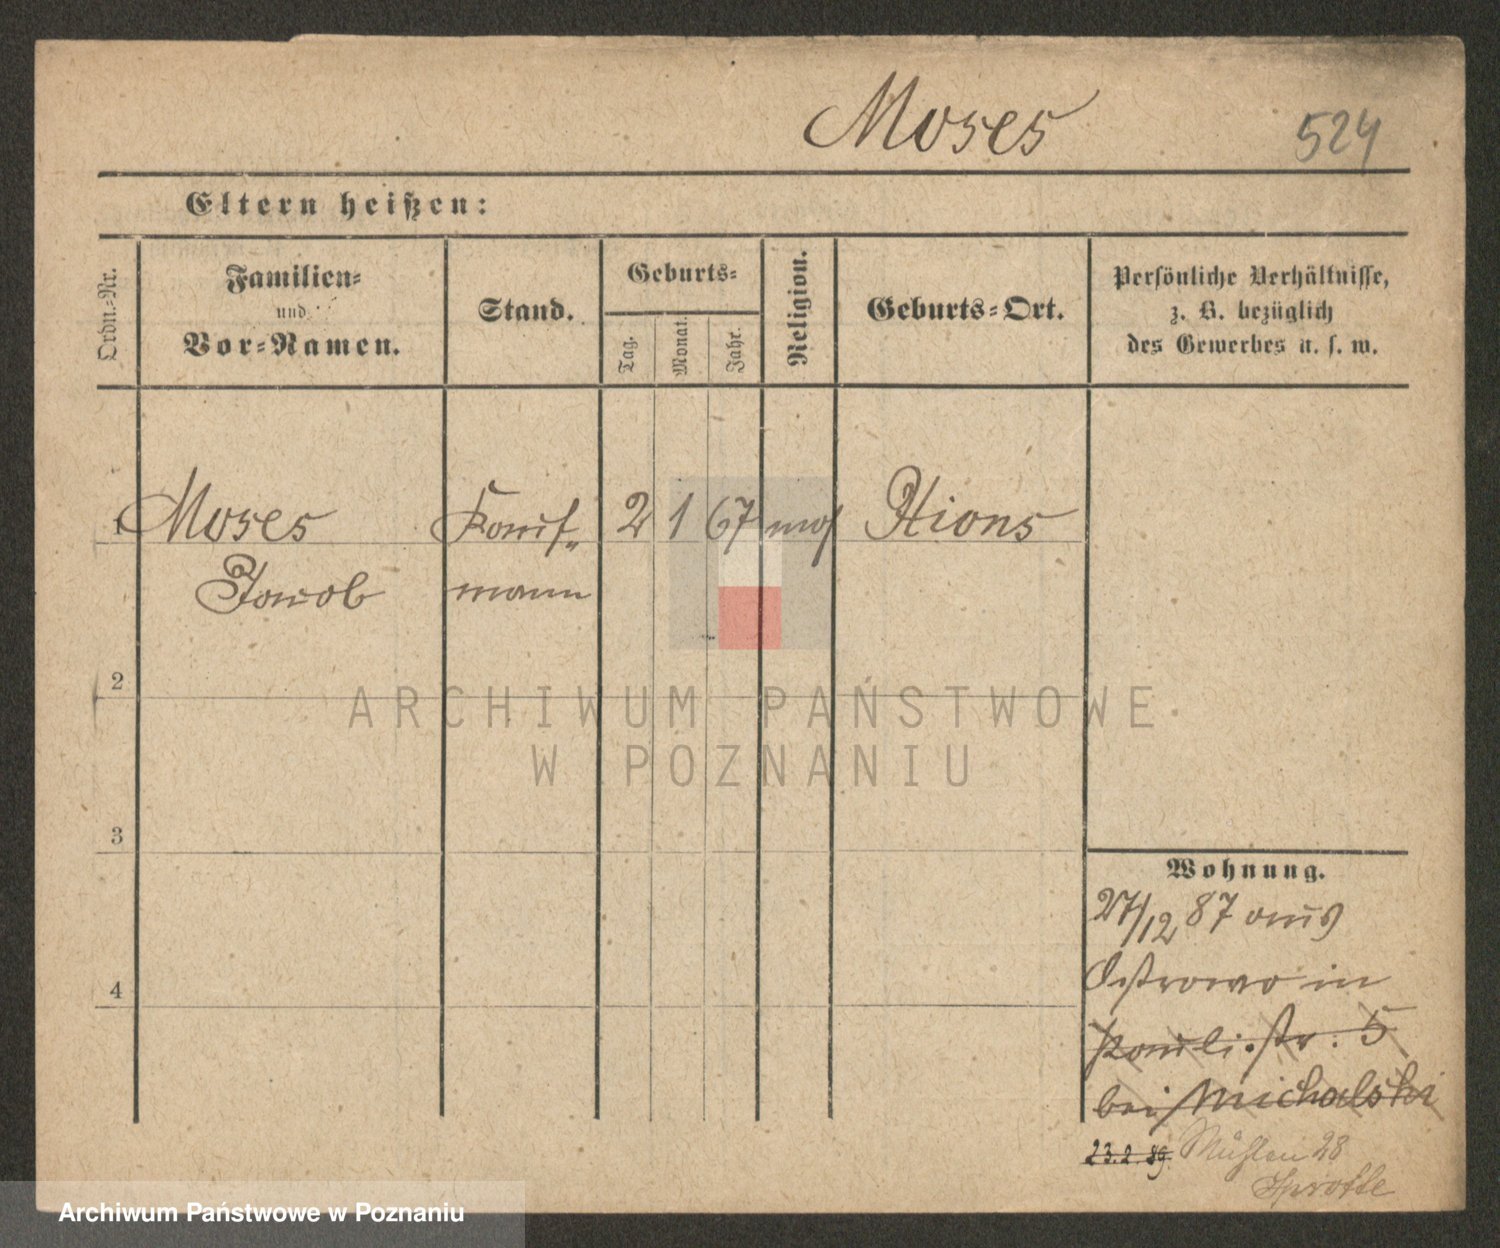 Moses
524
Eltern heißen:
Ordn.-Nr.
Familien-
und
Vor-Namen.
Stand.
Geburts-
Tag.
Monat.
Jahr.
Religion.
Geburts-Ort.
Persönliche Verhältnisse,
z. B. bezüglich
des Gewerbes u. s. w.
1 Moses Kauf- 2 1 67 mos Xions
Jacob mann
2
3
4
Wohnung.
27/12 87 aus
Ostrowo in
Pauli.str. 5
bei Michalski
23.2.89. Mühlen 28
Sprotte
ARCHIWUM PAŃSTWOWE
W POZNANIU
Archiwum Państwowe w Poznaniu